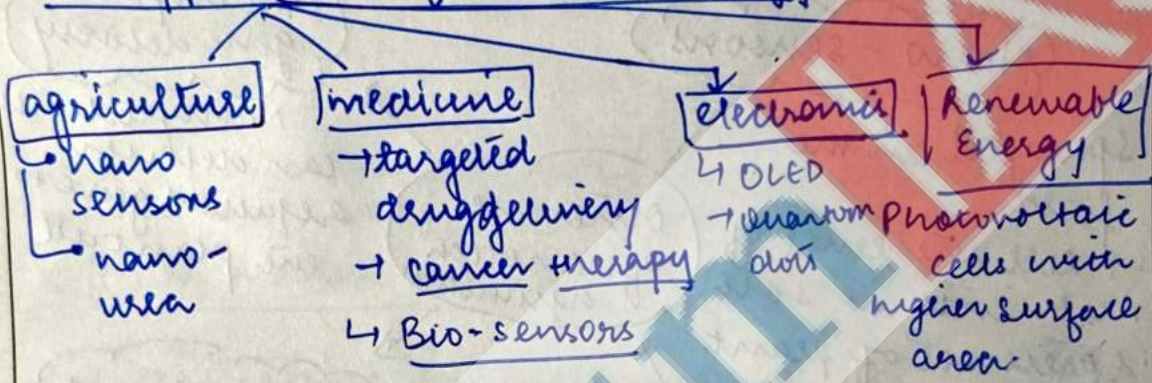 agriculture
nano
sensors
nano-
urea
medicine
→targeted
drug delivery
→ cancer therapy
↳ Bio-sensors
electronics
↳ OLED
→ quantum
dots
Renewable
Energy
Photovoltaic
cells with
higher surface
area.